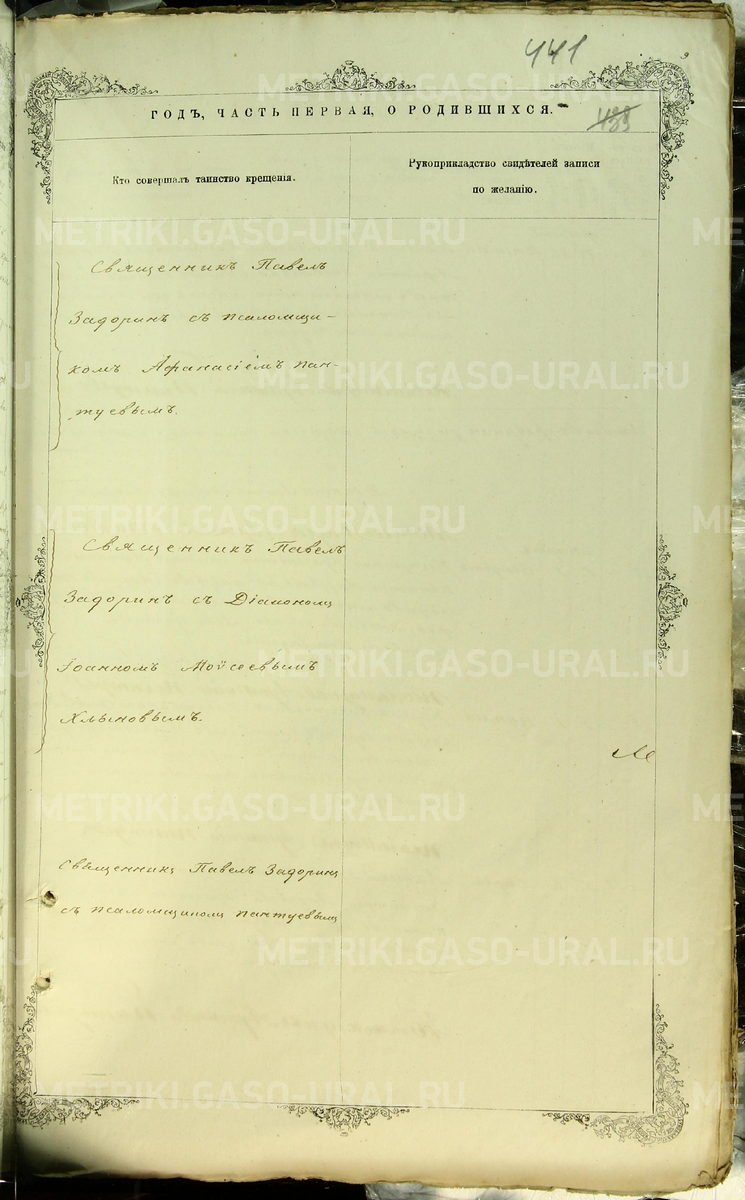 441
9
ГОДЪ, ЧАСТЬ ПЕРВАЯ, О РОДИВШИХСЯ.
439
Кто совершалъ таинство крещенія.
Рукоприкладство свидѣтелей записи
по желанію.
Священникъ Павелъ
Задоринъ съ псаломщи-
комъ Афанасіемъ Пан-
туевымъ.
Священникъ Павелъ
Задоринъ съ Діакономъ
Іоанномъ Моѵсеевымъ
Хлыновымъ.
Священникъ Павелъ Задоринъ
съ псаломщикомъ Пантуевымъ
METRIKI.GASO-URAL.RU